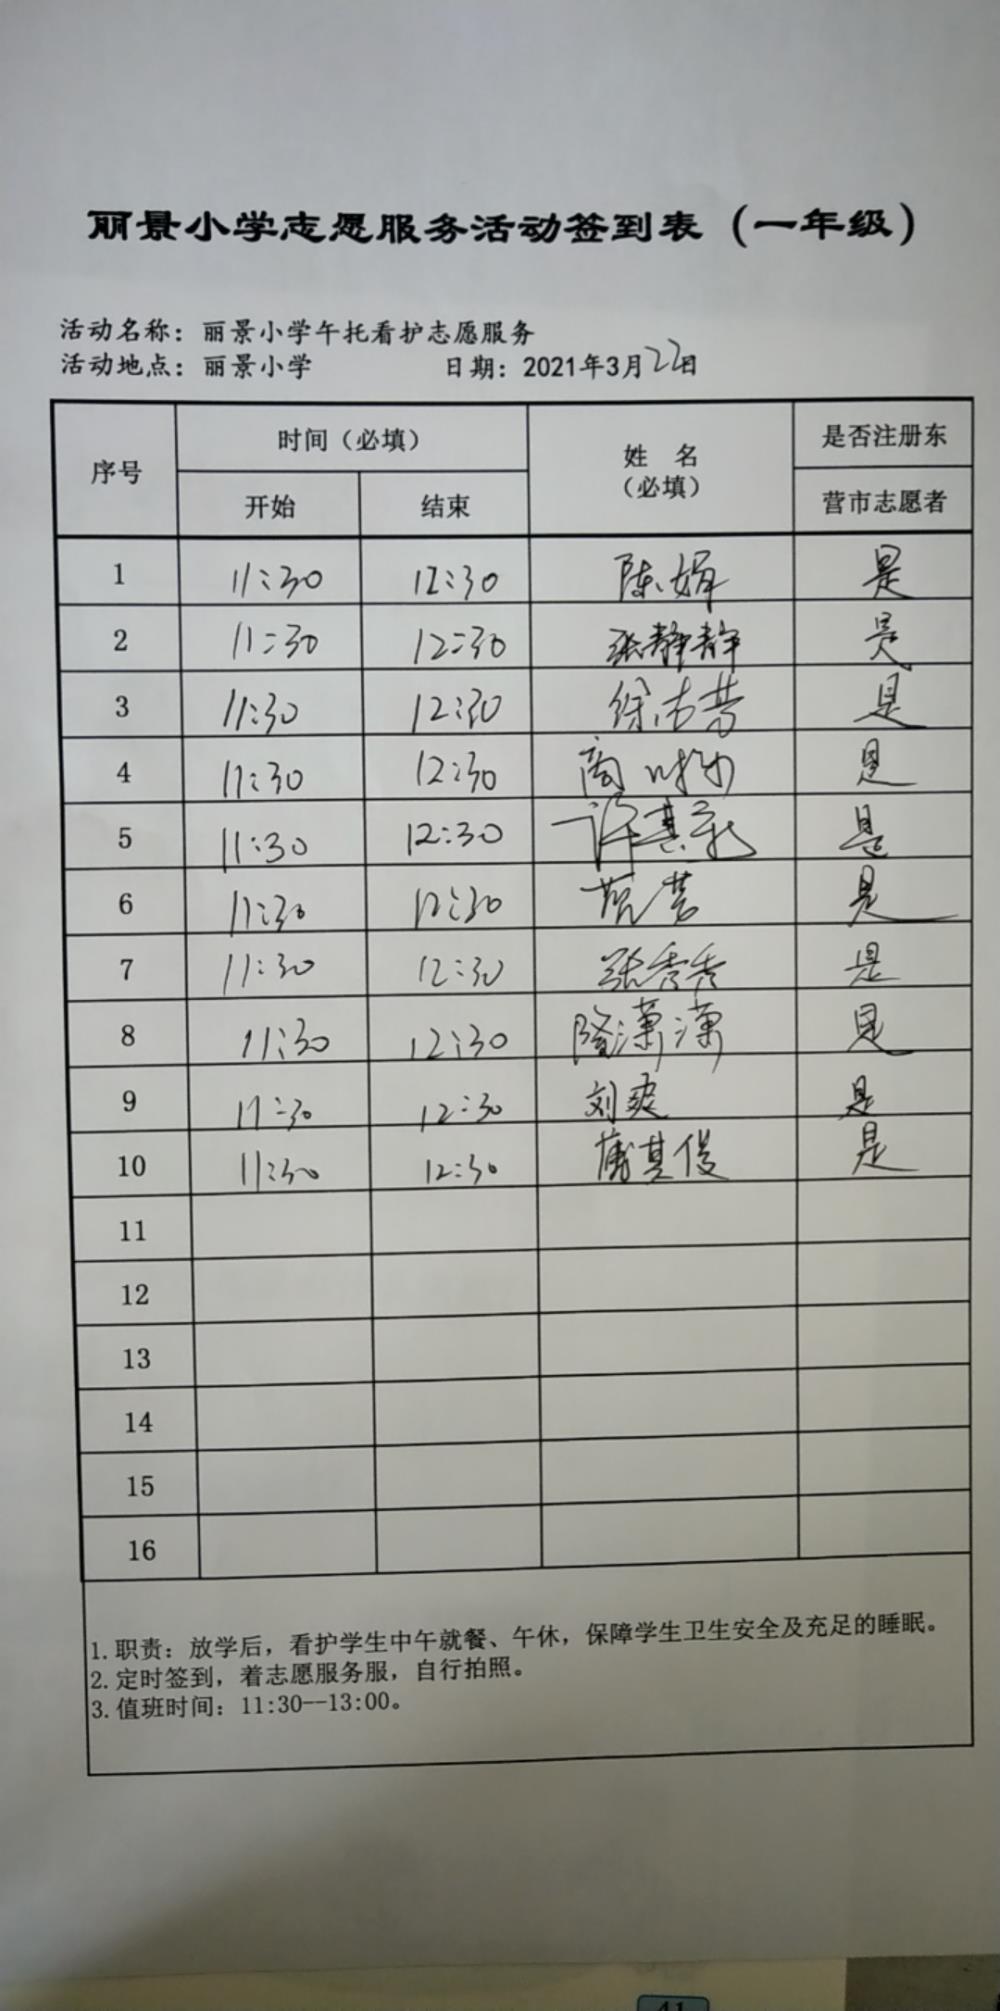 丽景小学志愿服务活动签到表（一年级）
活动名称：丽景小学午托看护志愿服务
活动地点：丽景小学 日期：2021年3月22日
序号 时间（必填） 姓 名（必填） 是否注册东营市志愿者
开始 结束
1 11:30 12:30 陈娟 是
2 11:30 12:30 张静静 是
3 11:30 12:30 徐 是
4 11:30 12:30 商 是
5 11:30 12:30 许其 是
6 11:30 12:30 范 是
7 11:30 12:30 张秀秀 是
8 11:30 12:30 隆潇潇 是
9 11:30 12:30 刘爽 是
10 11:30 12:30 蒲其俊 是
11
12
13
14
15
16
1.职责：放学后，看护学生中午就餐、午休，保障学生卫生安全及充足的睡眠。
2.定时签到，着志愿服务服，自行拍照。
3.值班时间：11:30--13:00。
41